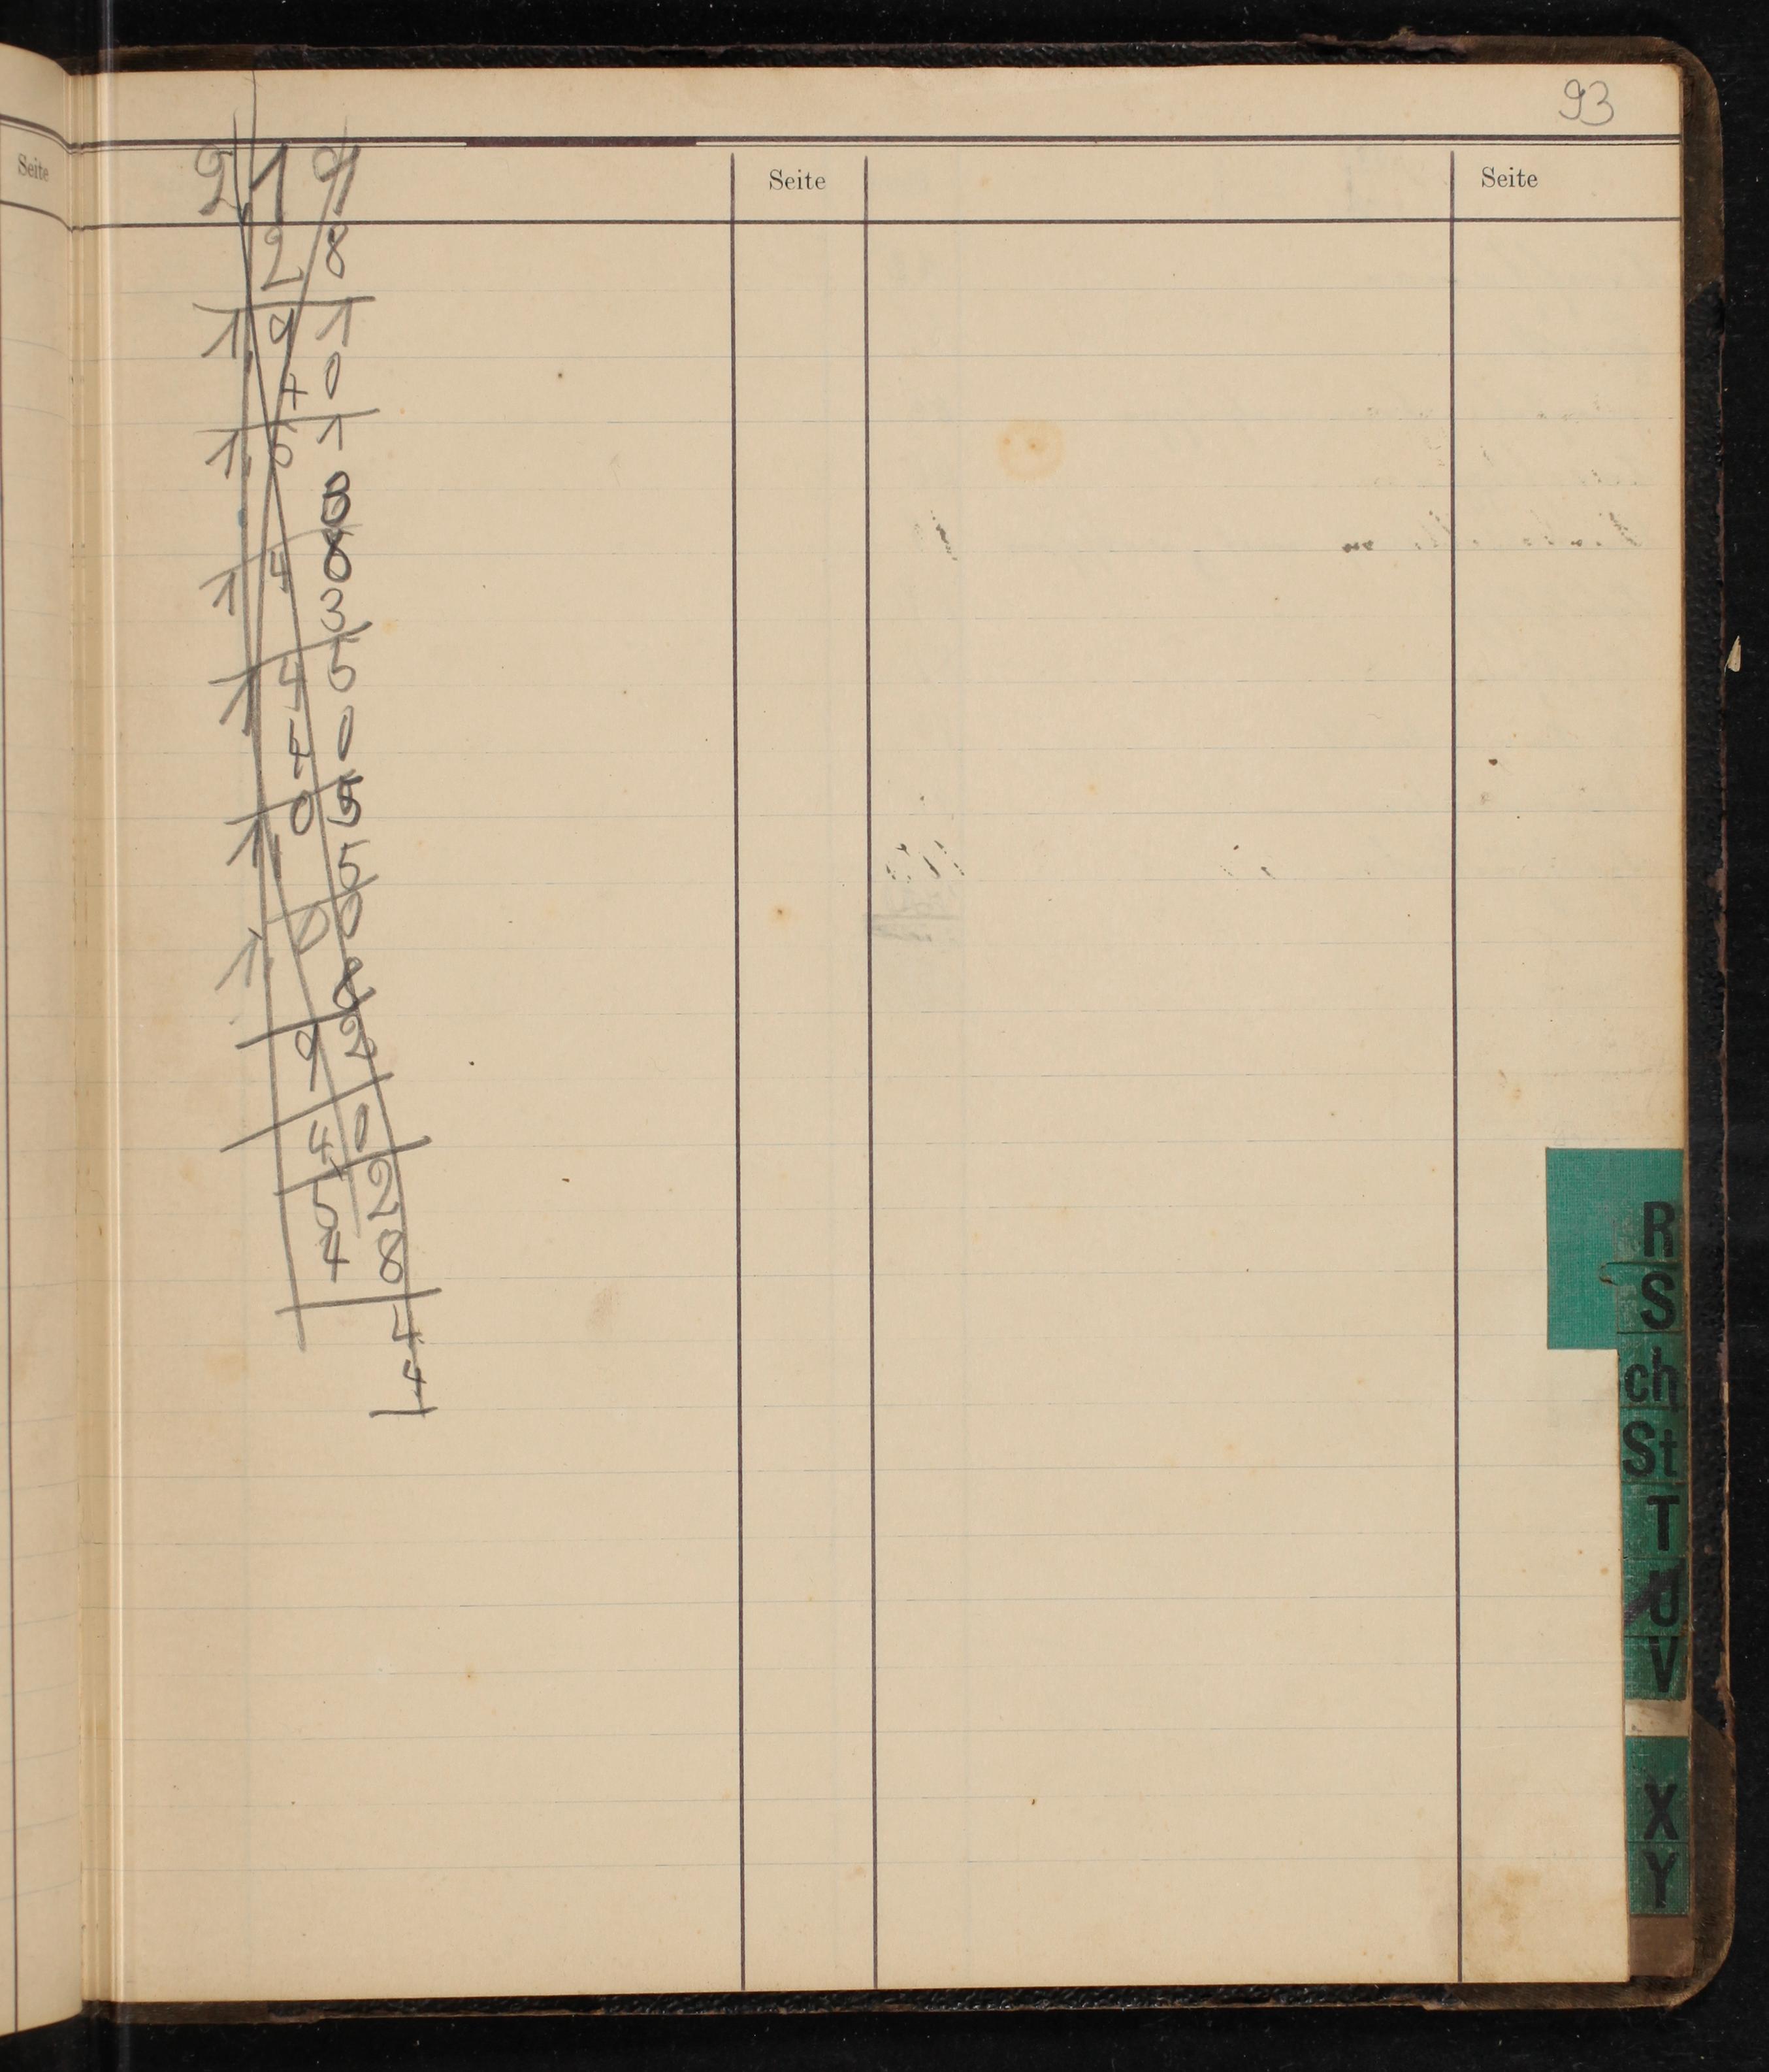 93
Seite
Seite
Seite
2,19
28
1,91
40
1,51
3
1 48
3
1,45
40
1,05
5
1,00
8
92
40
52
48
4
4
R
S
ch
St
T
U
V
X
Y